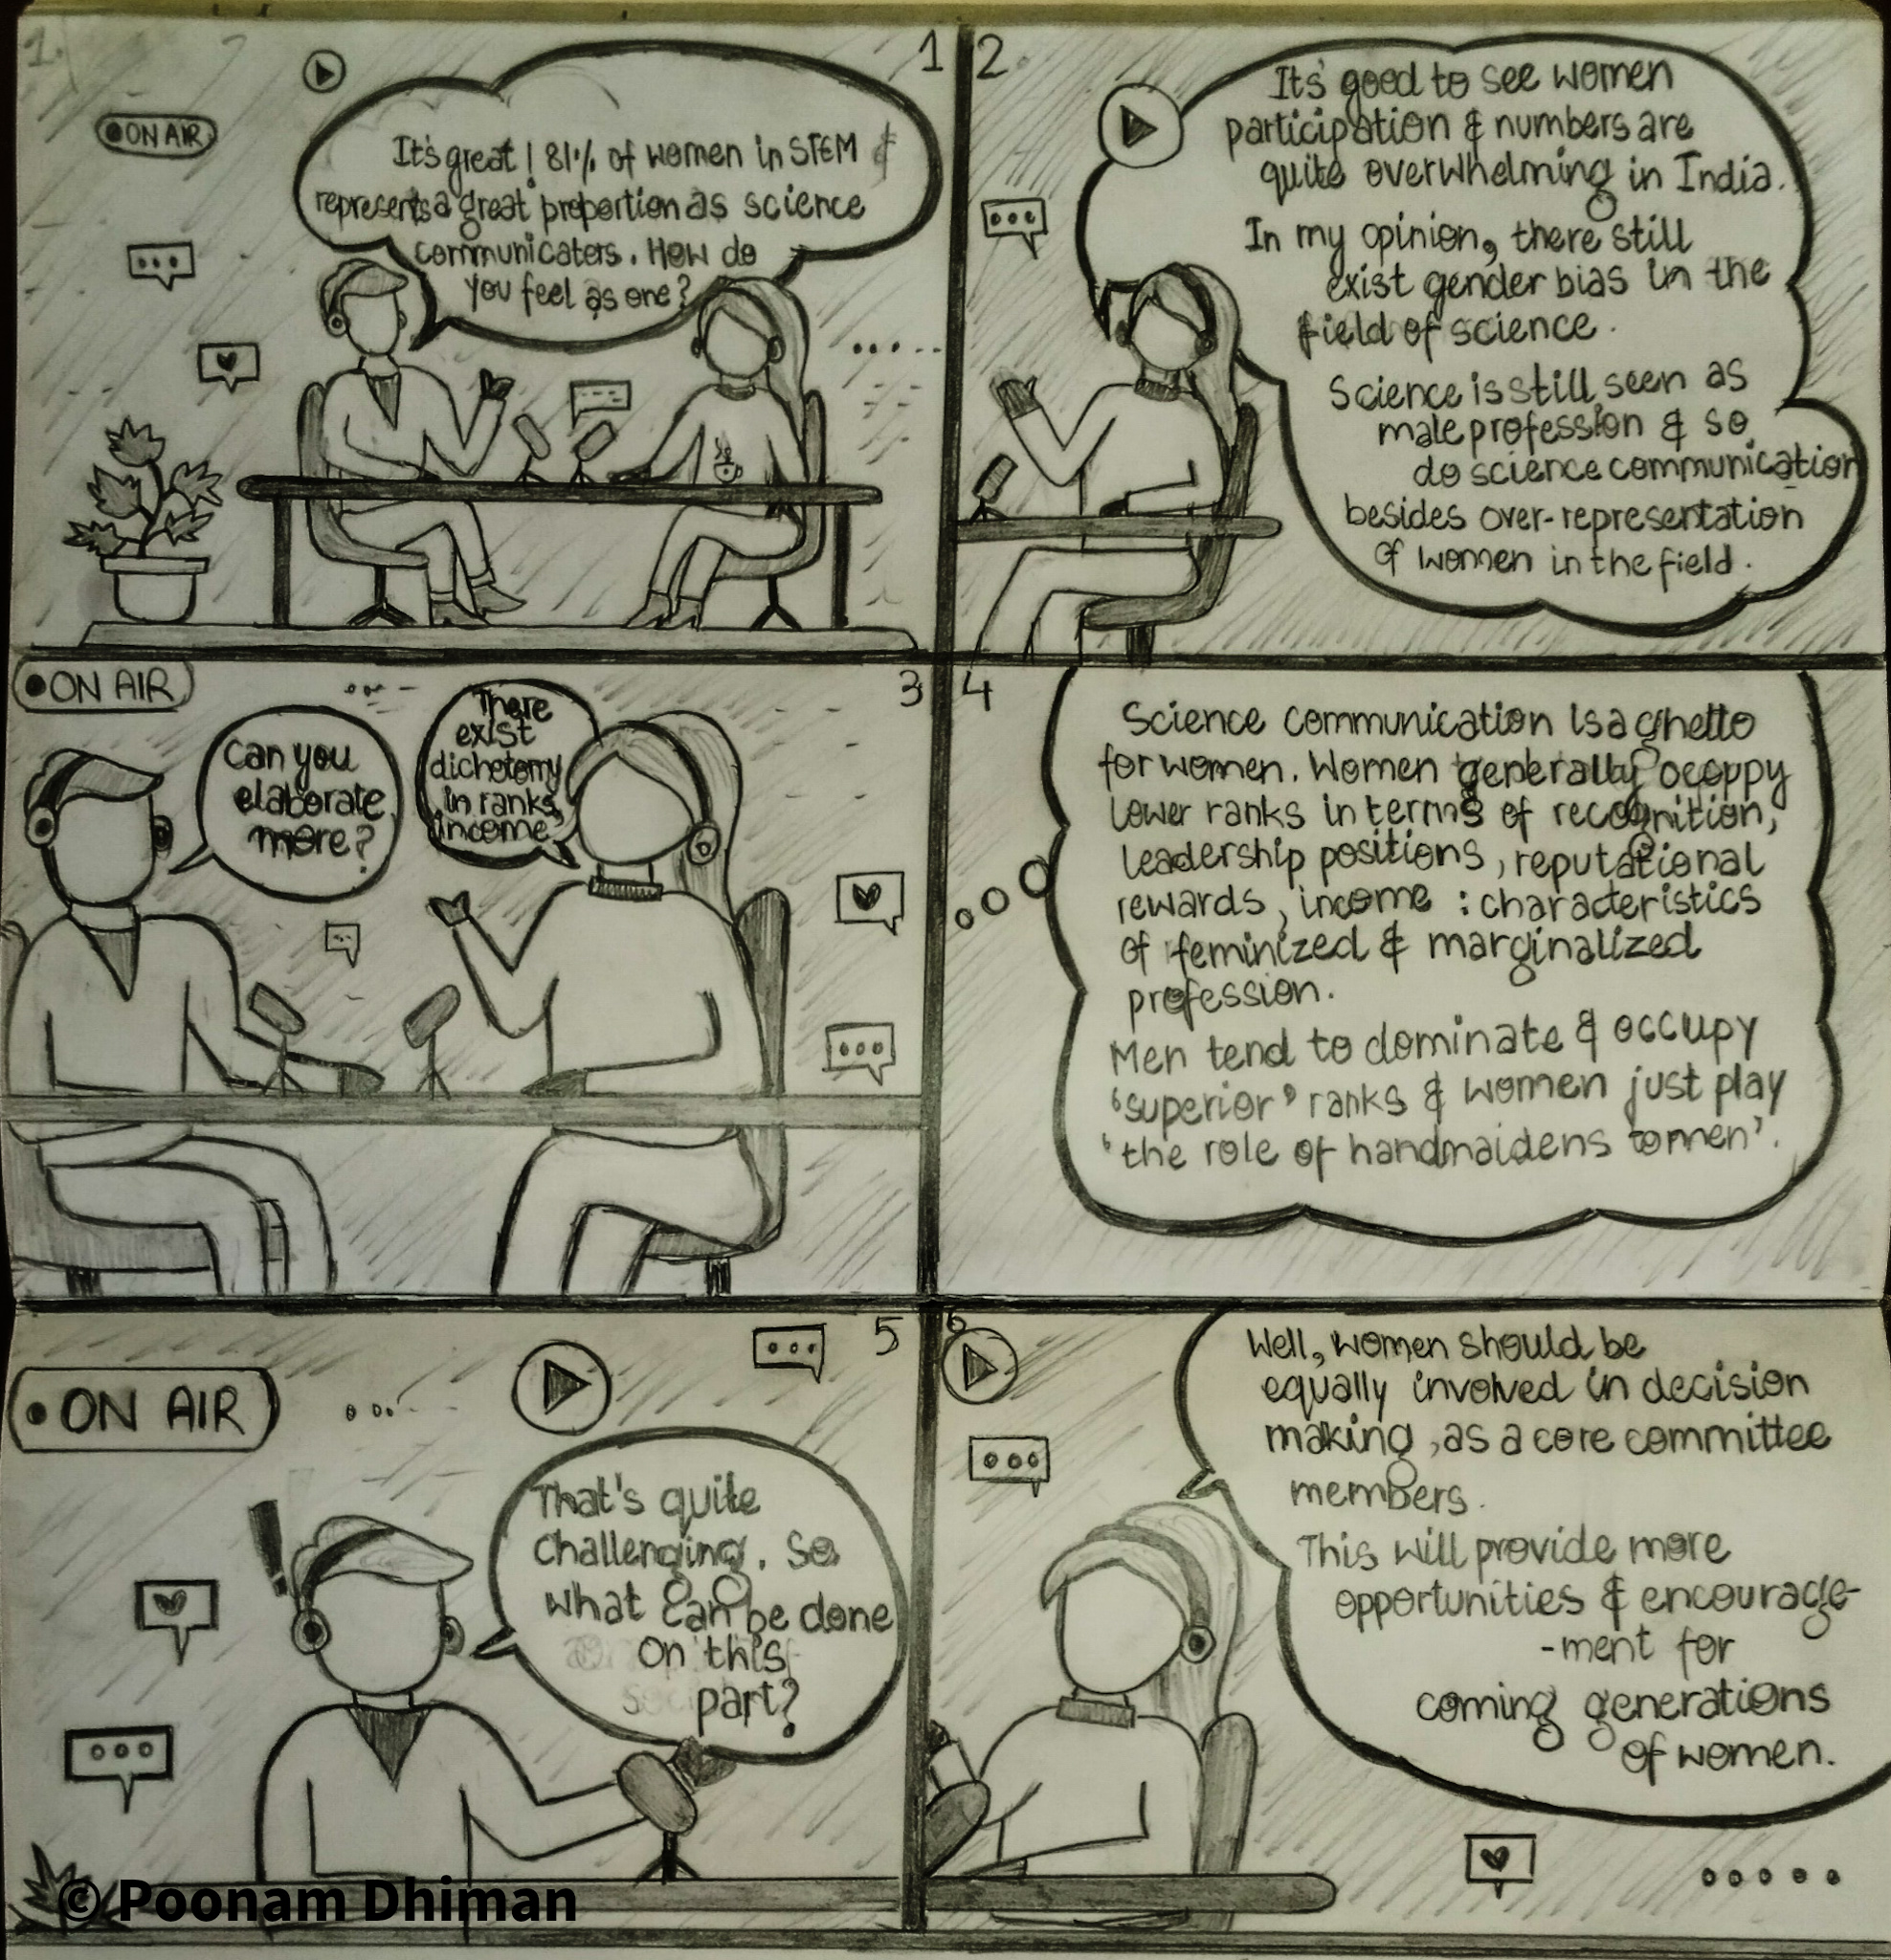 1
ON AIR
It's great! 81% of women in STEM &
represents a great proportion as science
communicaters. How do
you feel as one?
2
It's good to see women
participation & numbers are
quite overwhelming in India.
In my opinion, there still
exist gender bias in the
field of science.
Science is still seen as
male profession & so
do science communication
besides over-representation
of women in the field.
3
ON AIR
Can you
elaborate
more?
There
exist
dichotomy
in ranks,
income
4
Science communication is a ghetto
for women. Women generally occuppy
lower ranks in terms of recognition,
leadership positions, reputational
rewards, income : characteristics
of feminized & marginalized
profession.
Men tend to dominate & occupy
'superior' ranks & women just play
'the role of handmaidens to men'.
5
ON AIR
!
That's quite
challenging. So
what can be done
on this
part?
6
Well, women should be
equally involved in decision
making, as a core committee
members.
This will provide more
opportunities & encourage-
-ment for
coming generations
of women.
© Poonam Dhiman